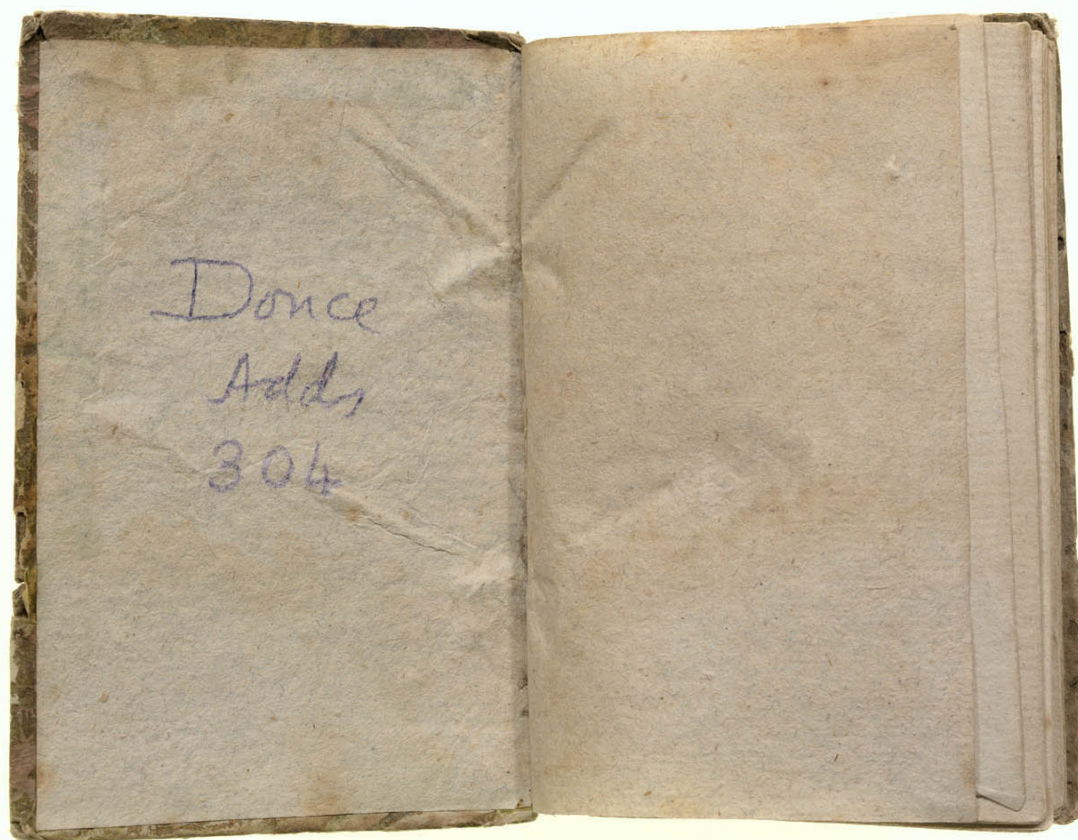 Douce
Adds
304